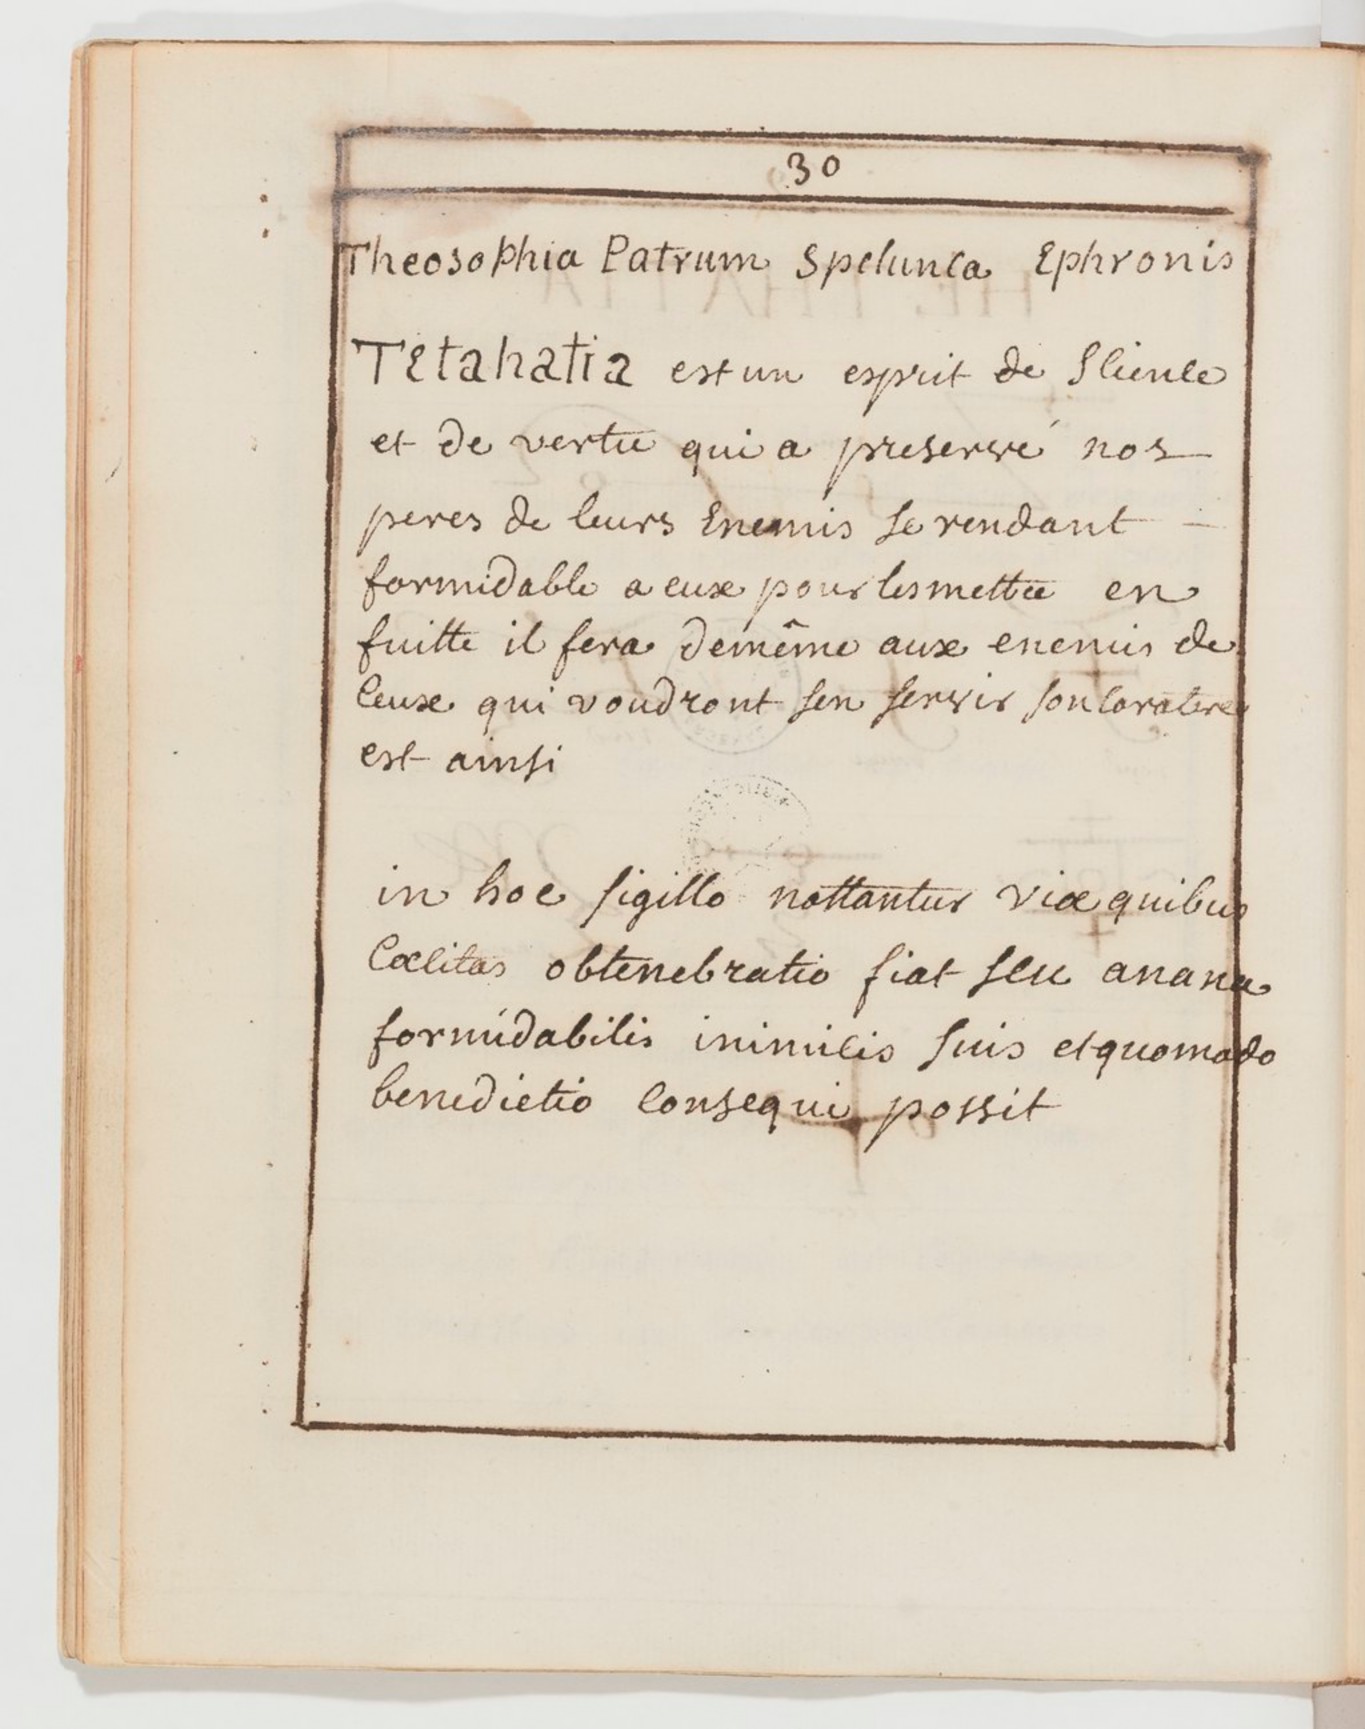 30
Theosophia Patrum Spelunca Ephronis
Tetahatia est un esprit de Science
et de vertu qui a preservé nos
peres de leurs Enemis se rendant
formidable a eux pour les mettre en
fuitte il fera demême aux enemis de
Ceux qui voudront sen servir son Caratere
est ainsi
in hoc sigillo nottantur viæ quibus
Cœlitas obtenebratio fiat seu
formidabilis inimicis suis et quomodo
benedictio Consequi possit